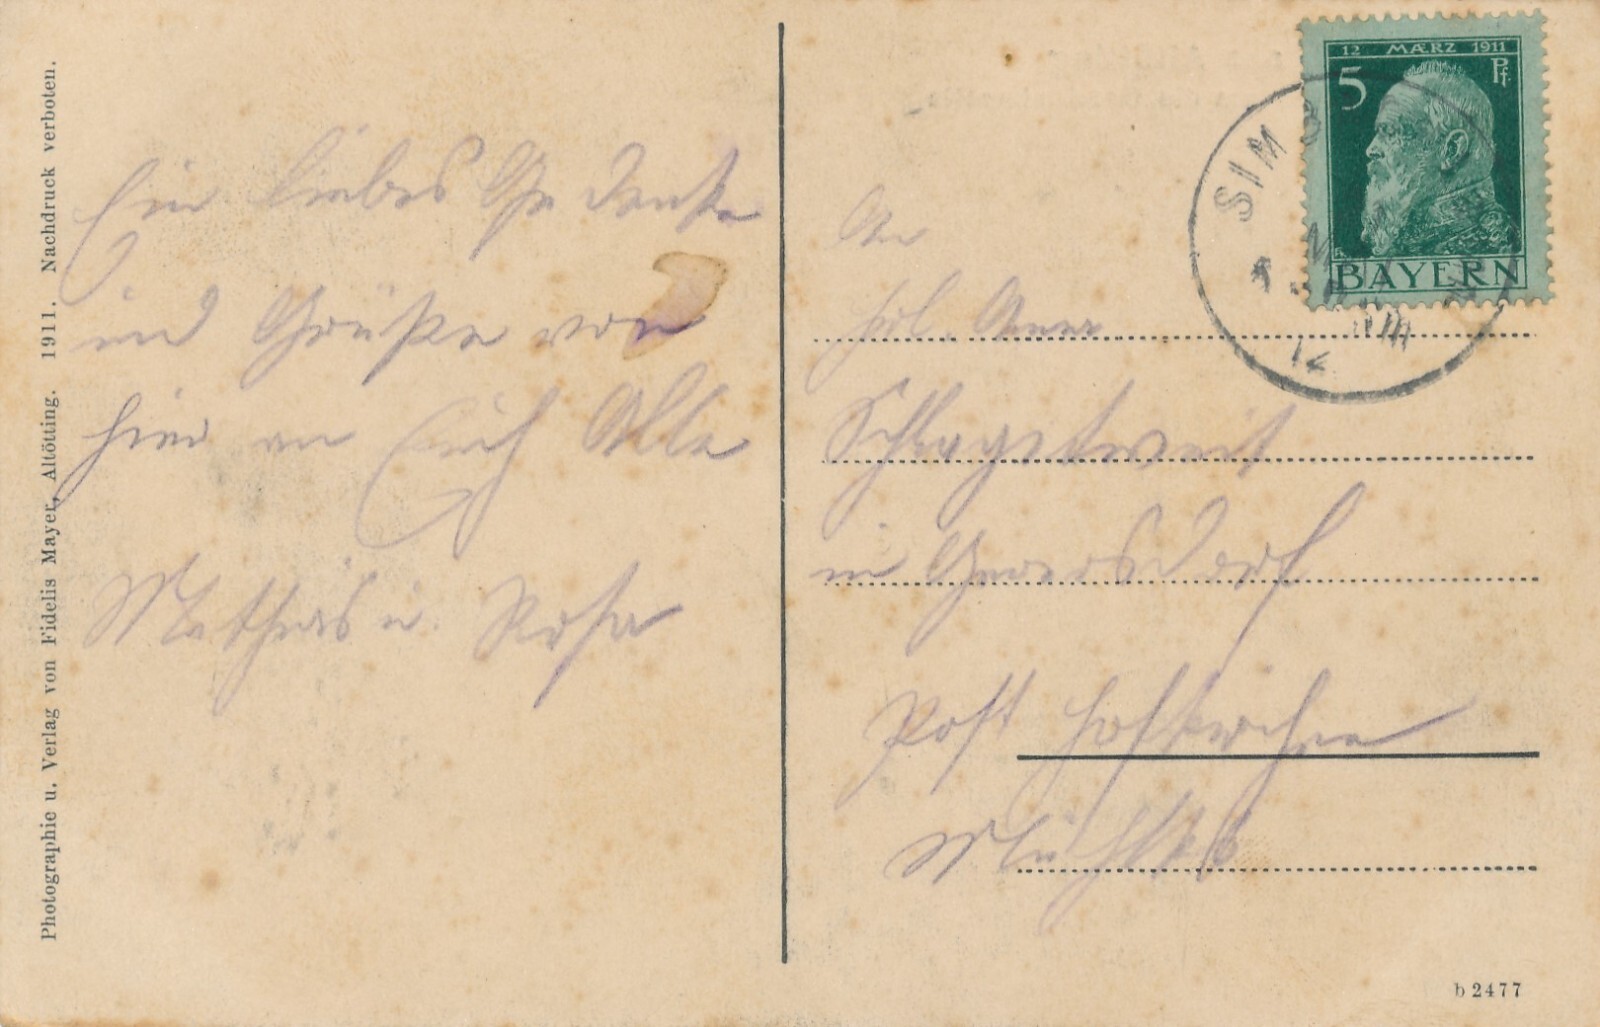 Photographie u. Verlag von Fidelis Mayer, Altötting. 1911. Nachdruck verboten.
Ein liebes Gedanke
und Grüße von
hier an Euch Alle
Mathias u. Rosa
12 MÆRZ 1911
5 Pf.
BAYERN
SIMB
An
Frl. Anna
Schlagetweit
in
Post Hofkirchen
b 2477